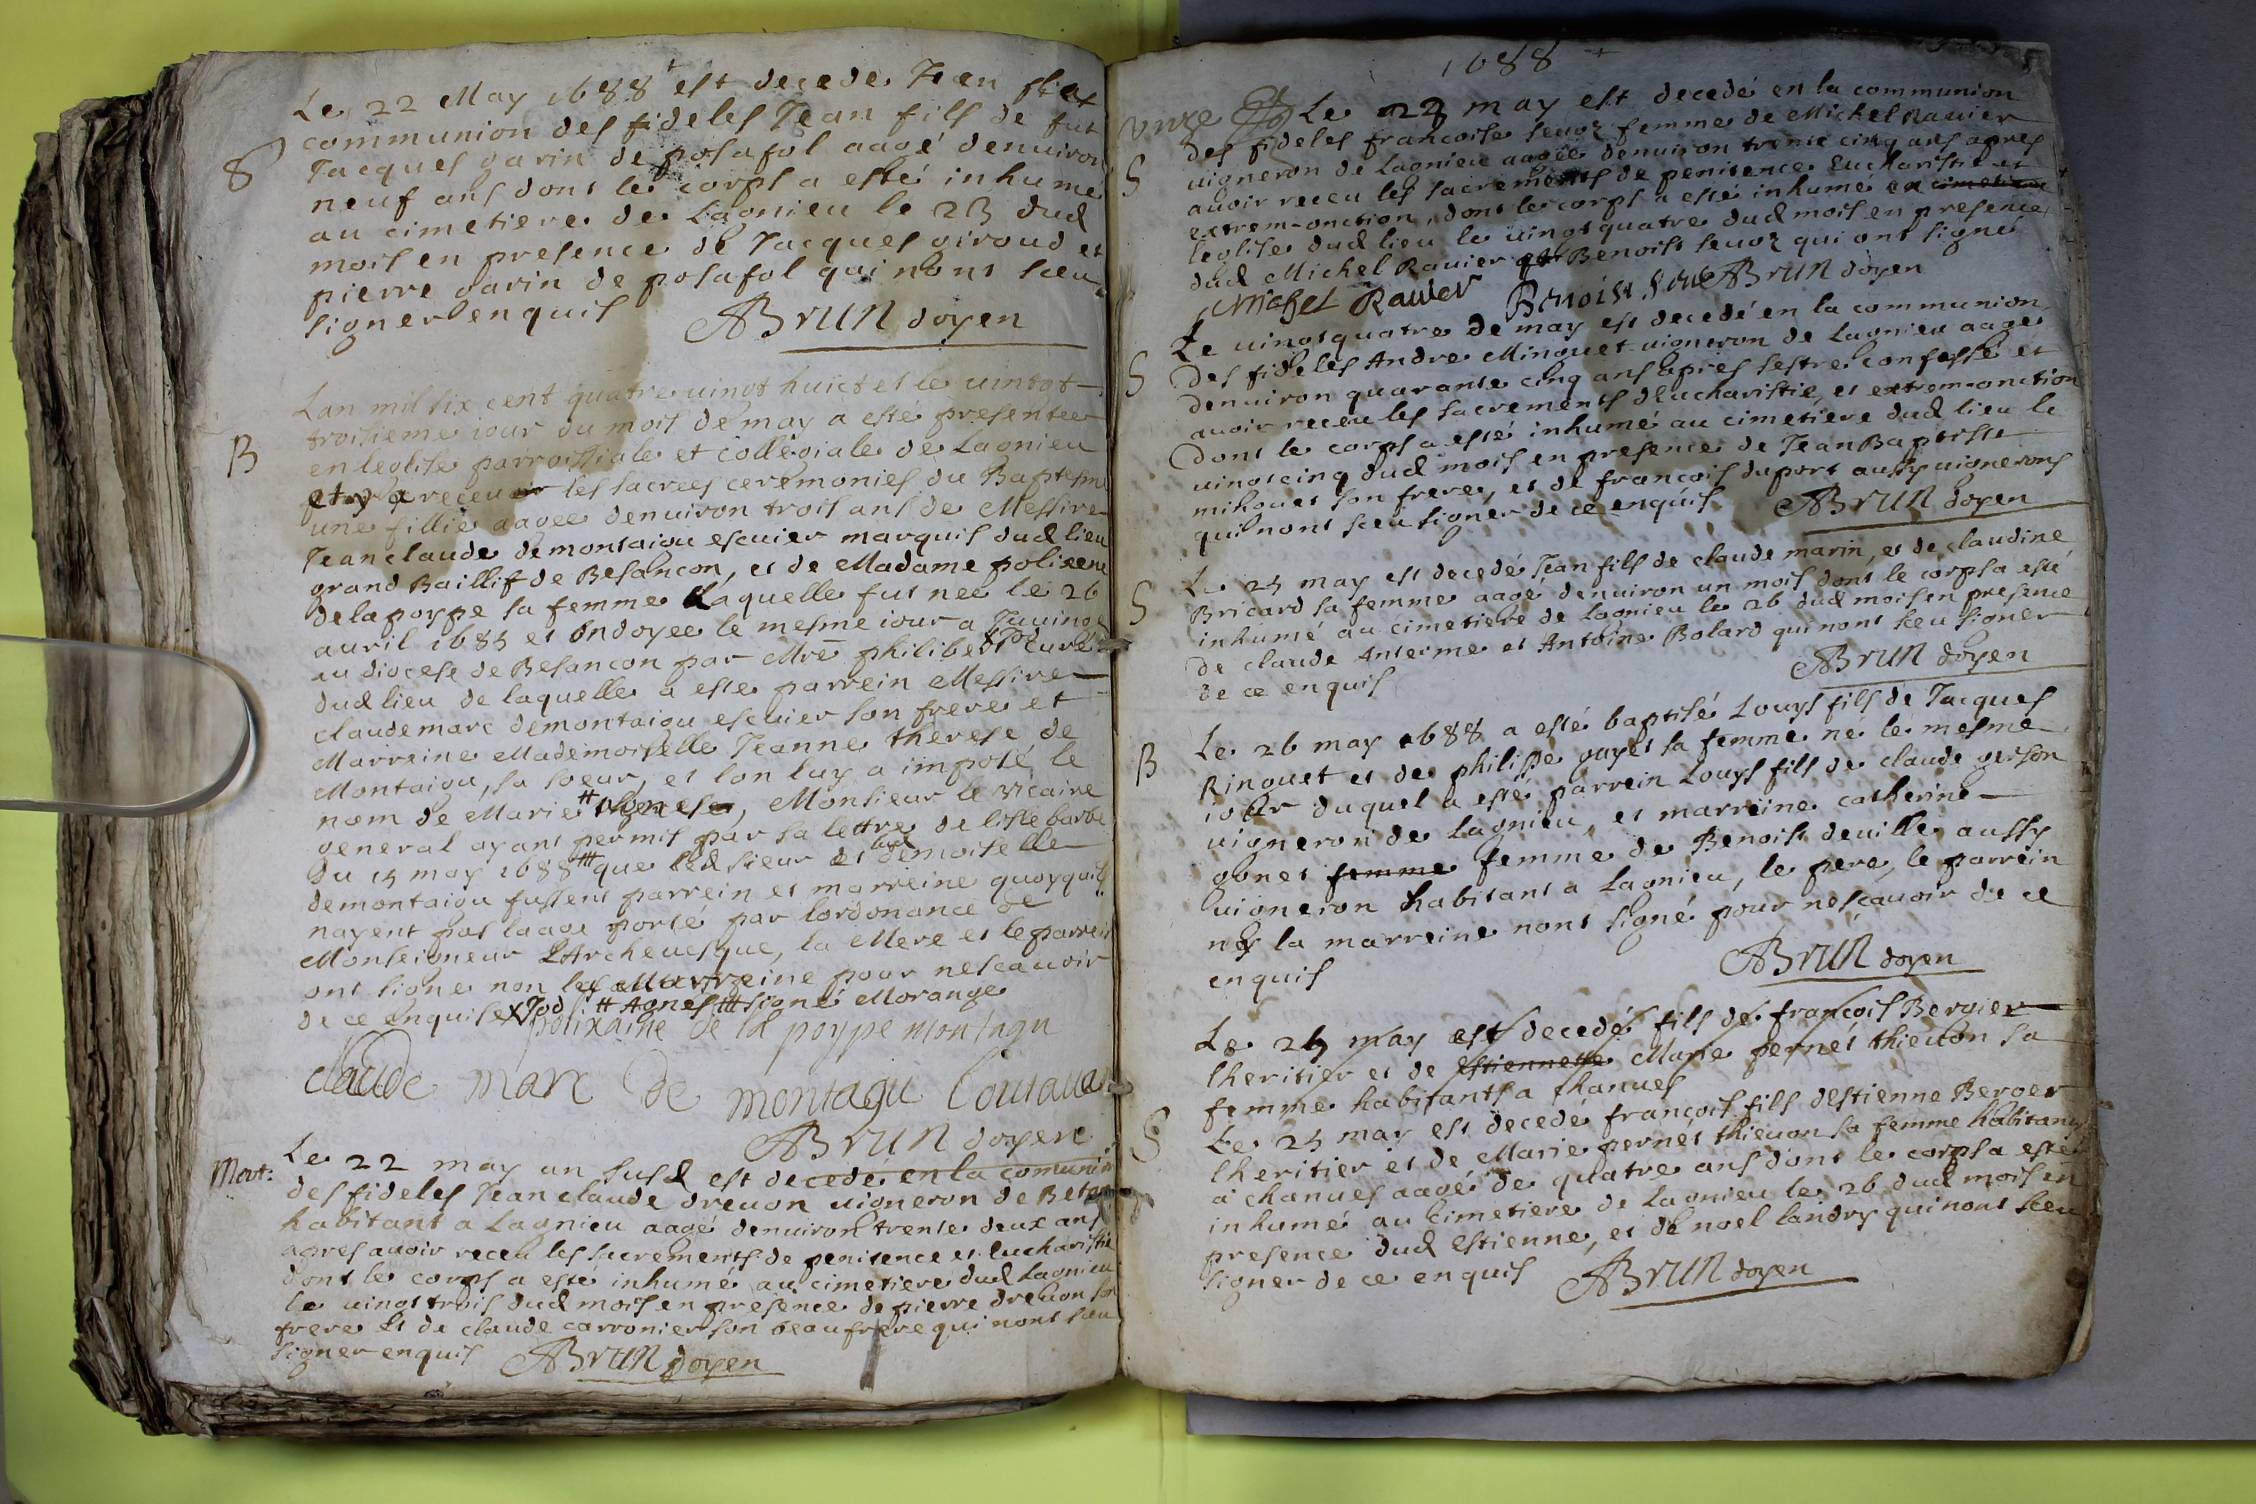 Le 22 May 1688 est decede Jean
communion des fideles Jean fils de fut
Jacques garin de posafol aagé denuiron
neuf ans dont le corps a esté inhume
au cimetiere de Lagnieu le 23 dud
mois en presence de Jacques giroud et
pierre garin de posafol qui nont sceu
signer enquis ABrun doyen
S
Lan mil six cent quatre uingt huict et le uintgt
troisieme iour du mois de may a esté presentee
en leglise parroissiale et collegiale de Lagnieu
B
et y a receu les sacrees ceremonies du Baptesme
une fillie aagee denuiron trois ans de Messire
Jean claude de montaigu escuier marquis dud lieu
grand Baillif de Besancon, et de Madame polixene
de la poype sa femme Laquelle fut nee le 26
auril 1685 et ondoyee le mesme iour a
au diocese de Besancon par Mre philibert Curé
dud lieu de laquelle a este parrein Messire
claude marc de montaigu escuier son frere et
Marreine Mademoiselle Jeanne therese de
Montaigu, sa soeur, et lon luy a imposé le
nom de Marie # therese, Monsieur le Vicaire
general ayant permis par sa lettre de lisle barbe
du 15 may 1688 # que led sieur et lad demoiselle
demontaigu fussent parrein et marreine quoyquils
nayent pas laage porté par lordonance de
Monseigneur LArcheuesque, la Mere et le parrein
ont signe non la Marreine pour nescauoir
de ce enquise # Agnes # signé Morange
polixaine de la poype montagu
claude marc de montagu
ABrun doyen
Mort:
Le 22 may an susd est decedé en la comunion
des fideles Jean claude dreuon uigneron de
habitant a Lagnieu aagé denuiron trente deux ans
apres auoir receu les sacrements de penitence et Eucharistie
dont le corps a esté inhumé au cimetiere dud Lagnieu
le uingt trois dud mois en presence de pierre dreuon son
frere et de claude carronier son beaufrere qui nont sceu
signer enquis ABrun doyen
1688
Le 23 may est decedé en la communion
des fideles francoise seuoz femme de Michel Rauier
uigneron de Lagnieu aagée denuiron trente cinq ans apres
S
auoir receu les sacrements de penitence Eucharistie et
extrem-onction, dont le corps a esté inhume en cimetiere
leglise dud lieu le uingt quatre dud mois en presence
dud Michel Rauier et Benoist seuoz qui ont signé
Michel Rauier Benoist ABrun doyen
Le uingt quatre de may est decedé en la communion
des fideles Andre Minguet uigneron de Lagnieu aagé
S
denuiron quarante cinq ans apres sestre confessé et
auoir receu les sacrements dEucharistie, et extrem-onction
dont le corps a esté inhumé au cimetiere dud lieu le
uingt cinq dud mois en presence de Jean Baptiste
son frere, et de francois duport aussy uignerons
qui nont sceu signer de ce enquis ABrun doyen
Le 25 may est decedé Jean fils de claude marin, et de claudine
Bricard sa femme aagé denuiron un mois dont le corps a esté
S
inhumé au cimetiere de Lagnieu le 26 dud mois en presence
de claude Anterme et Antoine Bolard qui nont sceu signer
de ce enquis ABrun doyen
Le 26 may 1688 a esté baptisé Louys fils de Jacques
Ringuet et de philippe guyet sa femme né le mesme
B
iour duquel a esté parrein Louys fils de claude gerson
uigneron de Lagnieu, et marreine catherine
gonet femme femme de Benoist deuille aussy
uigneron habitant a Lagnieu, le pere, le parrein
ny la marreine nont signé pour nescauoir de ce
enquis ABrun doyen
Le 25 may est decedé fils de francois Bergier
lheritier et de Estiennette Marie pernet thieuon sa
femme habitants a chanues
Le 25 may est decedé francois fils dEstienne Berger
S
lheritier et de Marie pernet thieuon sa femme habitans
a chanues aagé de quatre ans dont le corps a esté
inhumé au cimetiere de Lagnieu le 26 dud mois en
presence dud Estienne, et de noel landry qui nont sceu
signer de ce enquis ABrun doyen